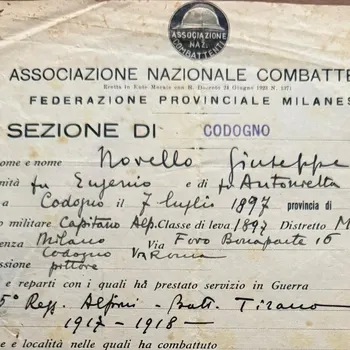 ASSOCIAZIONE
NAZ.
COMBATTENTI
ASSOCIAZIONE NAZIONALE COMBATTE
Eretta in Ente Morale con R. Decreto 24 Giugno 1923 N. 1371
FEDERAZIONE PROVINCIALE MILANES
SEZIONE DI CODOGNO
nome e nome Novello Giuseppe
nità fu Eugenio e di fu Antonietta
a Codogno il 7 luglio 1897 provincia di
o militare Capitano Alp. Classe di leva 1897 Distretto M
enza Milano Via Foro Bonaparte 16
Codogno Via Roma
essione pittore
e reparti con i quali ha prestato servizio in Guerra
5° Regg. Alpini - Batt. Tirano
1917 - 1918 -
e e località nelle quali ha combattuto